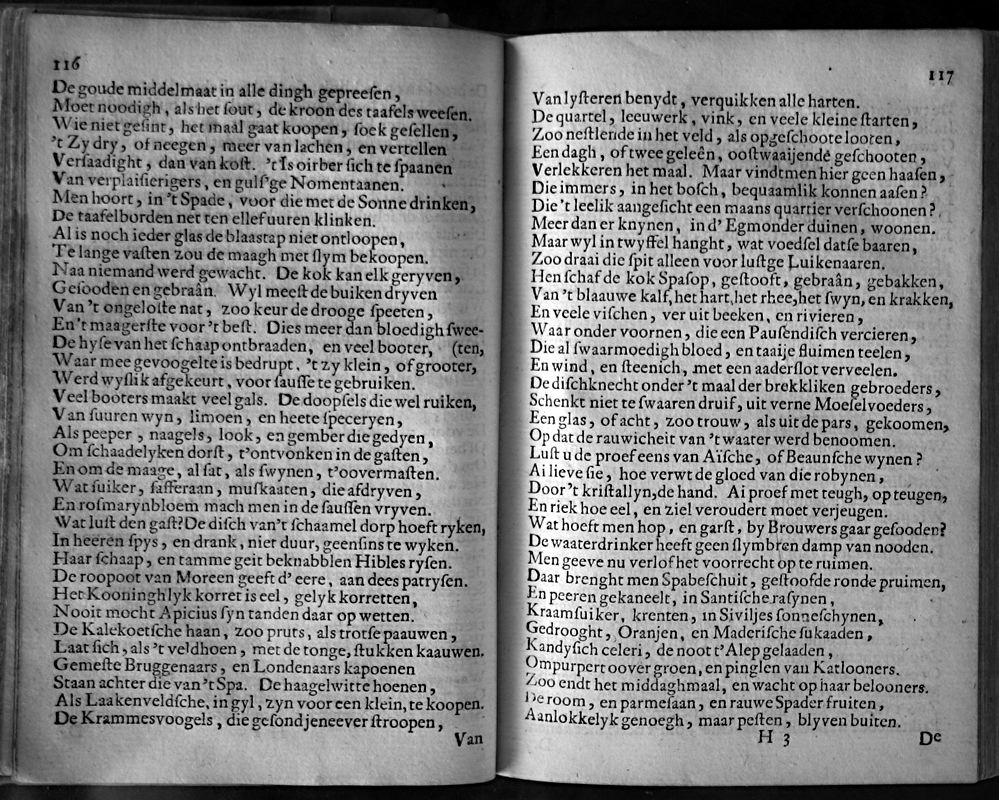 116
De goude middelmaat in alle dingh gepreeſen,
Moet noodigh, als het ſout, de kroon des taafels weeſen.
Wie niet geſint, het maal gaat koopen, ſoek geſellen,
't Zy dry, of neegen, meer van lachen, en vertellen
Verſaadight, dan van koſt. 't Is oirber ſich te ſpaanen
Van verplaiſierigers, en gulſ'ge Nomentaanen.
Men hoort, in 't Spade, voor die met de Sonne drinken,
De taafelborden net ten ellef uuren klinken.
Al is noch ieder glas de blaastap niet ontloopen,
Te lange vaſten zou de maagh met ſlym bekoopen.
Naa niemand werd gewacht. De kok kan elk geryven,
Geſooden en gebraân. Wyl meeſt de buiken dryven
Van 't ongeloſte nat, zoo keur de drooge ſpeeten,
En 't maagerſte voor 't beſt. Dies meer dan bloedigh ſwee-
De hyſe van het ſchaap ontbraaden, en veel booter, (ten,
Waar mee gevoogelte is bedrupt, 't zy klein, of grooter,
Werd wyſlik afgekeurt, voor ſauſſe te gebruiken.
Veel booters maakt veel gals. De doopſels die wel ruiken,
Van ſuuren wyn, limoen, en heete ſpeceryen,
Als peeper, naagels, look, en gember die gedyen,
Om ſchaadelyken dorſt, t'ontvonken in de gaſten,
En om de maage, al ſat, als ſwynen, t'oovermaſten.
Wat ſuiker, ſaffraan, muſkaaten, die afdryven,
En roſmarynbloem mach men in de ſauſſen vryven.
Wat luſt den gaſt? De diſch van 't ſchaamel dorp hoeft ryken,
In heeren ſpys, en drank, nier duur, geenſins te wyken.
Haar ſchaap, en tamme geit beknabblen Hibles ryſen.
De roopoot van Moreen geeft d'eere, aan dees patryſen.
Het Kooninghlyk korret is eel, gelyk korretten,
Nooit mocht Apicius ſyn tanden daar op wetten.
De Kalekoetſche haan, zoo pruts, als trotſe paauwen,
Laat ſich, als 't veldhoen, met de tonge, ſtukken kaauwen.
Gemeſte Bruggenaars, en Londenaars kapoenen
Staan achter die van 't Spa. De haagelwitte hoenen,
Als Laakenveldſche, in gyl, zyn voor een klein, te koopen.
De Krammesvoogels, die geſond jeneever ſtroopen,
Van
117
Van lyſteren benydt, verquikken alle harten.
De quartel, leeuwerk, vink, en veele kleine ſtarten,
Zoo neſtlende in het veld, als opgeſchoote looten,
Een dagh, of twee geleên, ooſtwaaijende geſchooten,
Verlekkeren het maal. Maar vindtmen hier geen haaſen,
Die immers, in het boſch, bequaamlik konnen aaſen?
Die 't leelik aangeſicht een maans quartier verſchoonen?
Meer dan er knynen, in d' Egmonder duinen, woonen.
Maar wyl in twyffel hanght, wat voedſel datſe baaren,
Zoo draai die ſpit alleen voor luſtge Luikenaaren.
Hen ſchaf de kok Spaſop, geſtooft, gebraân, gebakken,
Van 't blaauwe kalf, het hart, het rhee, het ſwyn, en krakken,
En veele viſchen, ver uit beeken, en rivieren,
Waar onder voornen, die een Pauſendiſch vercieren,
Die al ſwaarmoedigh bloed, en taaije fluimen teelen,
En wind, en ſteenich, met een aaderſlot verveelen.
De diſchknecht onder 't maal der brekkliken gebroeders,
Schenkt niet te ſwaaren druif, uit verne Moeſelvoeders,
Een glas, of acht, zoo trouw, als uit de pars, gekoomen,
Op dat de rauwicheit van 't waater werd benoomen.
Luſt u de proef eens van Aïſche, of Beaunſche wynen?
Ai lieve ſie, hoe verwt de gloed van die robynen,
Door 't kriſtallyn, de hand. Ai proef met teugh, op teugen,
En riek hoe eel, en ziel veroudert moet verjeugen.
Wat hoeft men hop, en garſt, by Brouwers gaar geſooden?
De waaterdrinker heeft geen ſlymbren damp van nooden.
Men geeve nu verlof het voorrecht op te ruimen.
Daar brenght men Spabeſchuit, geſtoofde ronde pruimen,
En peeren gekaneelt, in Santiſche raſynen,
Kraamſuiker, krenten, in Siviljes ſonneſchynen,
Gedrooght, Oranjen, en Maderiſche ſukaaden,
Kandyſich celeri, de noot t'Alep gelaaden,
Ompurpert oover groen, en pinglen van Katlooners.
Zoo endt het middaghmaal, en wacht op haar belooners.
De room, en parmeſaan, en rauwe Spader fruiten,
Aanlokkelyk genoegh, maar peſten, blyven buiten.
H 3
De